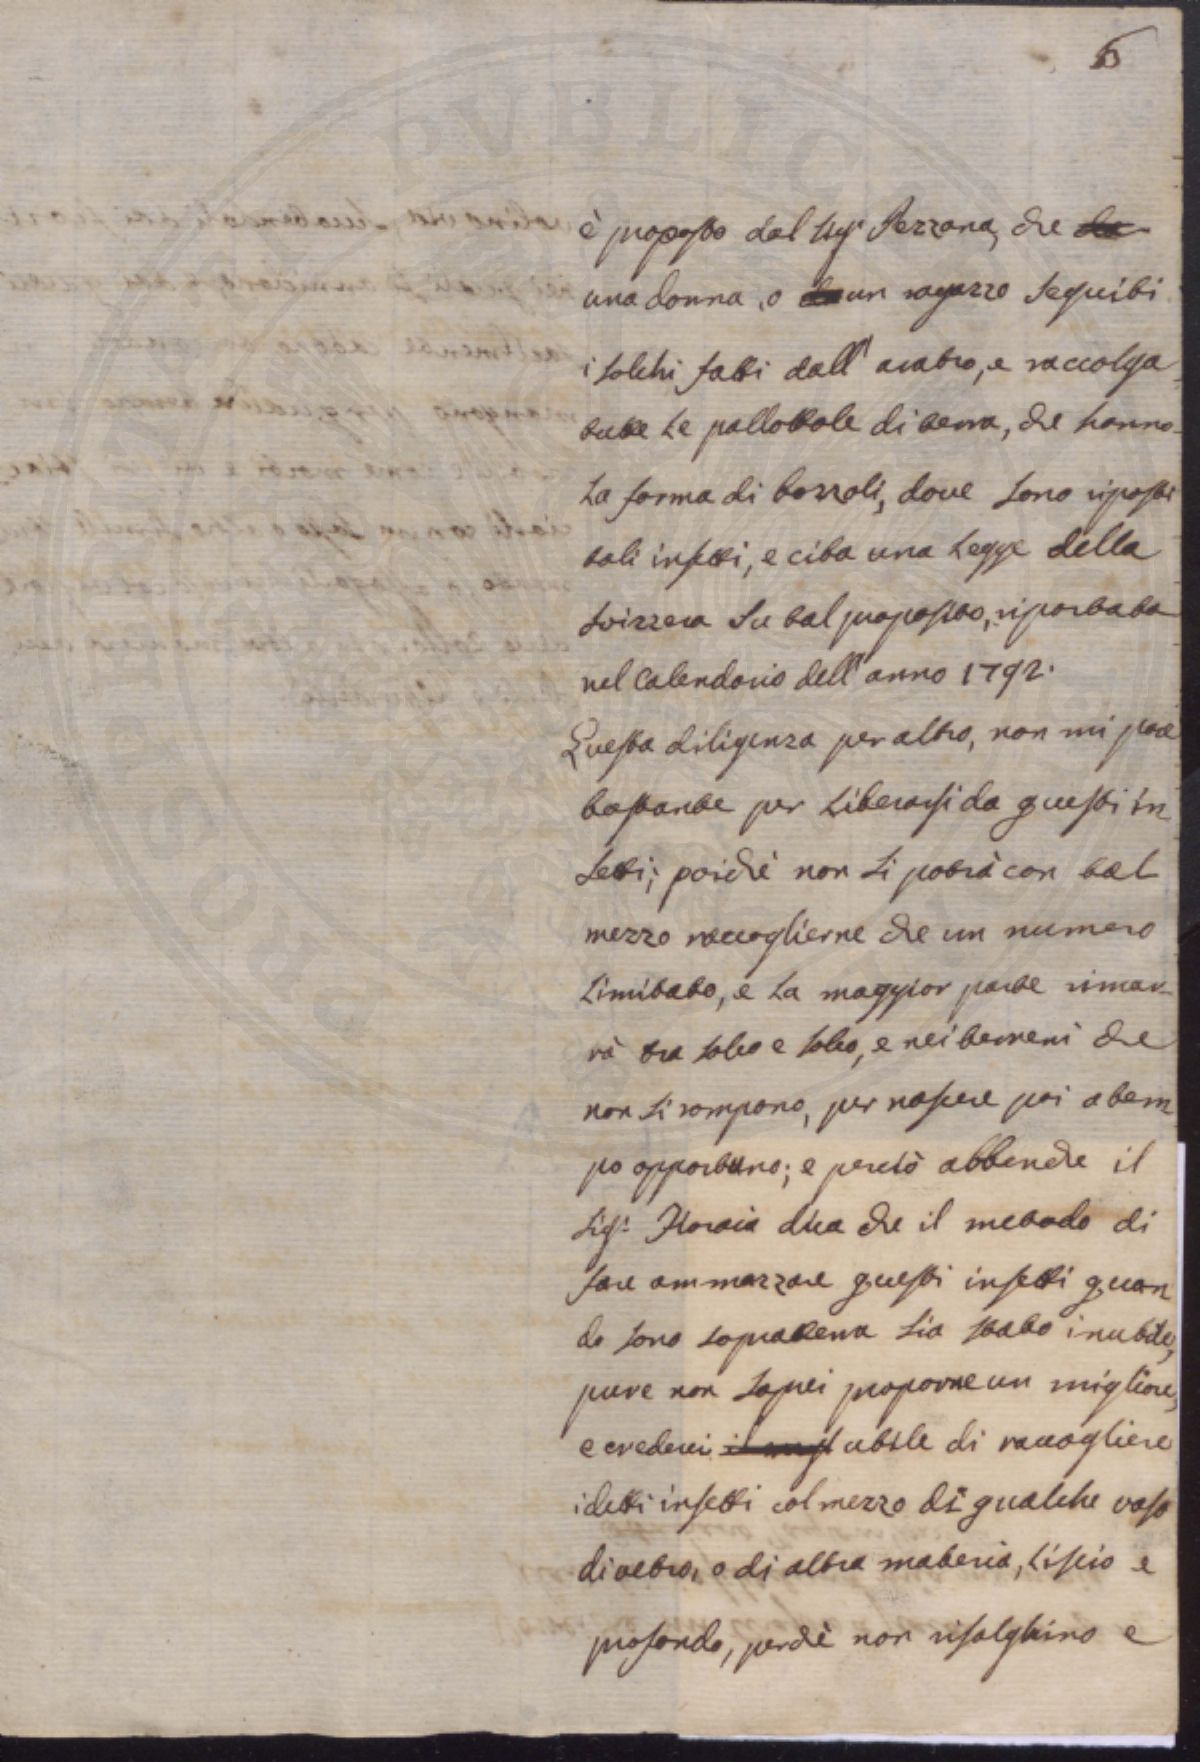 5
è proposto dal Sigr Pezzana, che da
una donna, o da un ragazzo seguiti
i solchi fatti dall' aratro, e raccolga
tutte le pallottole di terra, che hanno
la forma di bozzoli, dove sono riposti
tali insetti, e cita una Legge della
Svizzera su tal proposito, riportata
nel Calendario dell' anno 1792.
Questa diligenza per altro, non mi pare
bastante per liberarsi da questi in
setti; poichè non si potrà con tal
mezzo raccoglierne che un numero
limitato, e la maggior parte rimar
rà tra solco e solco, e nei terreni che
non si rompono, per nascere poi a tem
po opportuno; e perciò abbenche il
Sigr dica che il metodo di
fare ammazzare questi insetti quan
do sono sopraterra sia stato inutile,
pure non saprei proporne un migliore,
e crederei il migl utile di raccogliere
i detti insetti col mezzo di qualche vaso
di vetro, o di altra materia, liscio e
profondo, perchè non risalghino e
PVBLIC